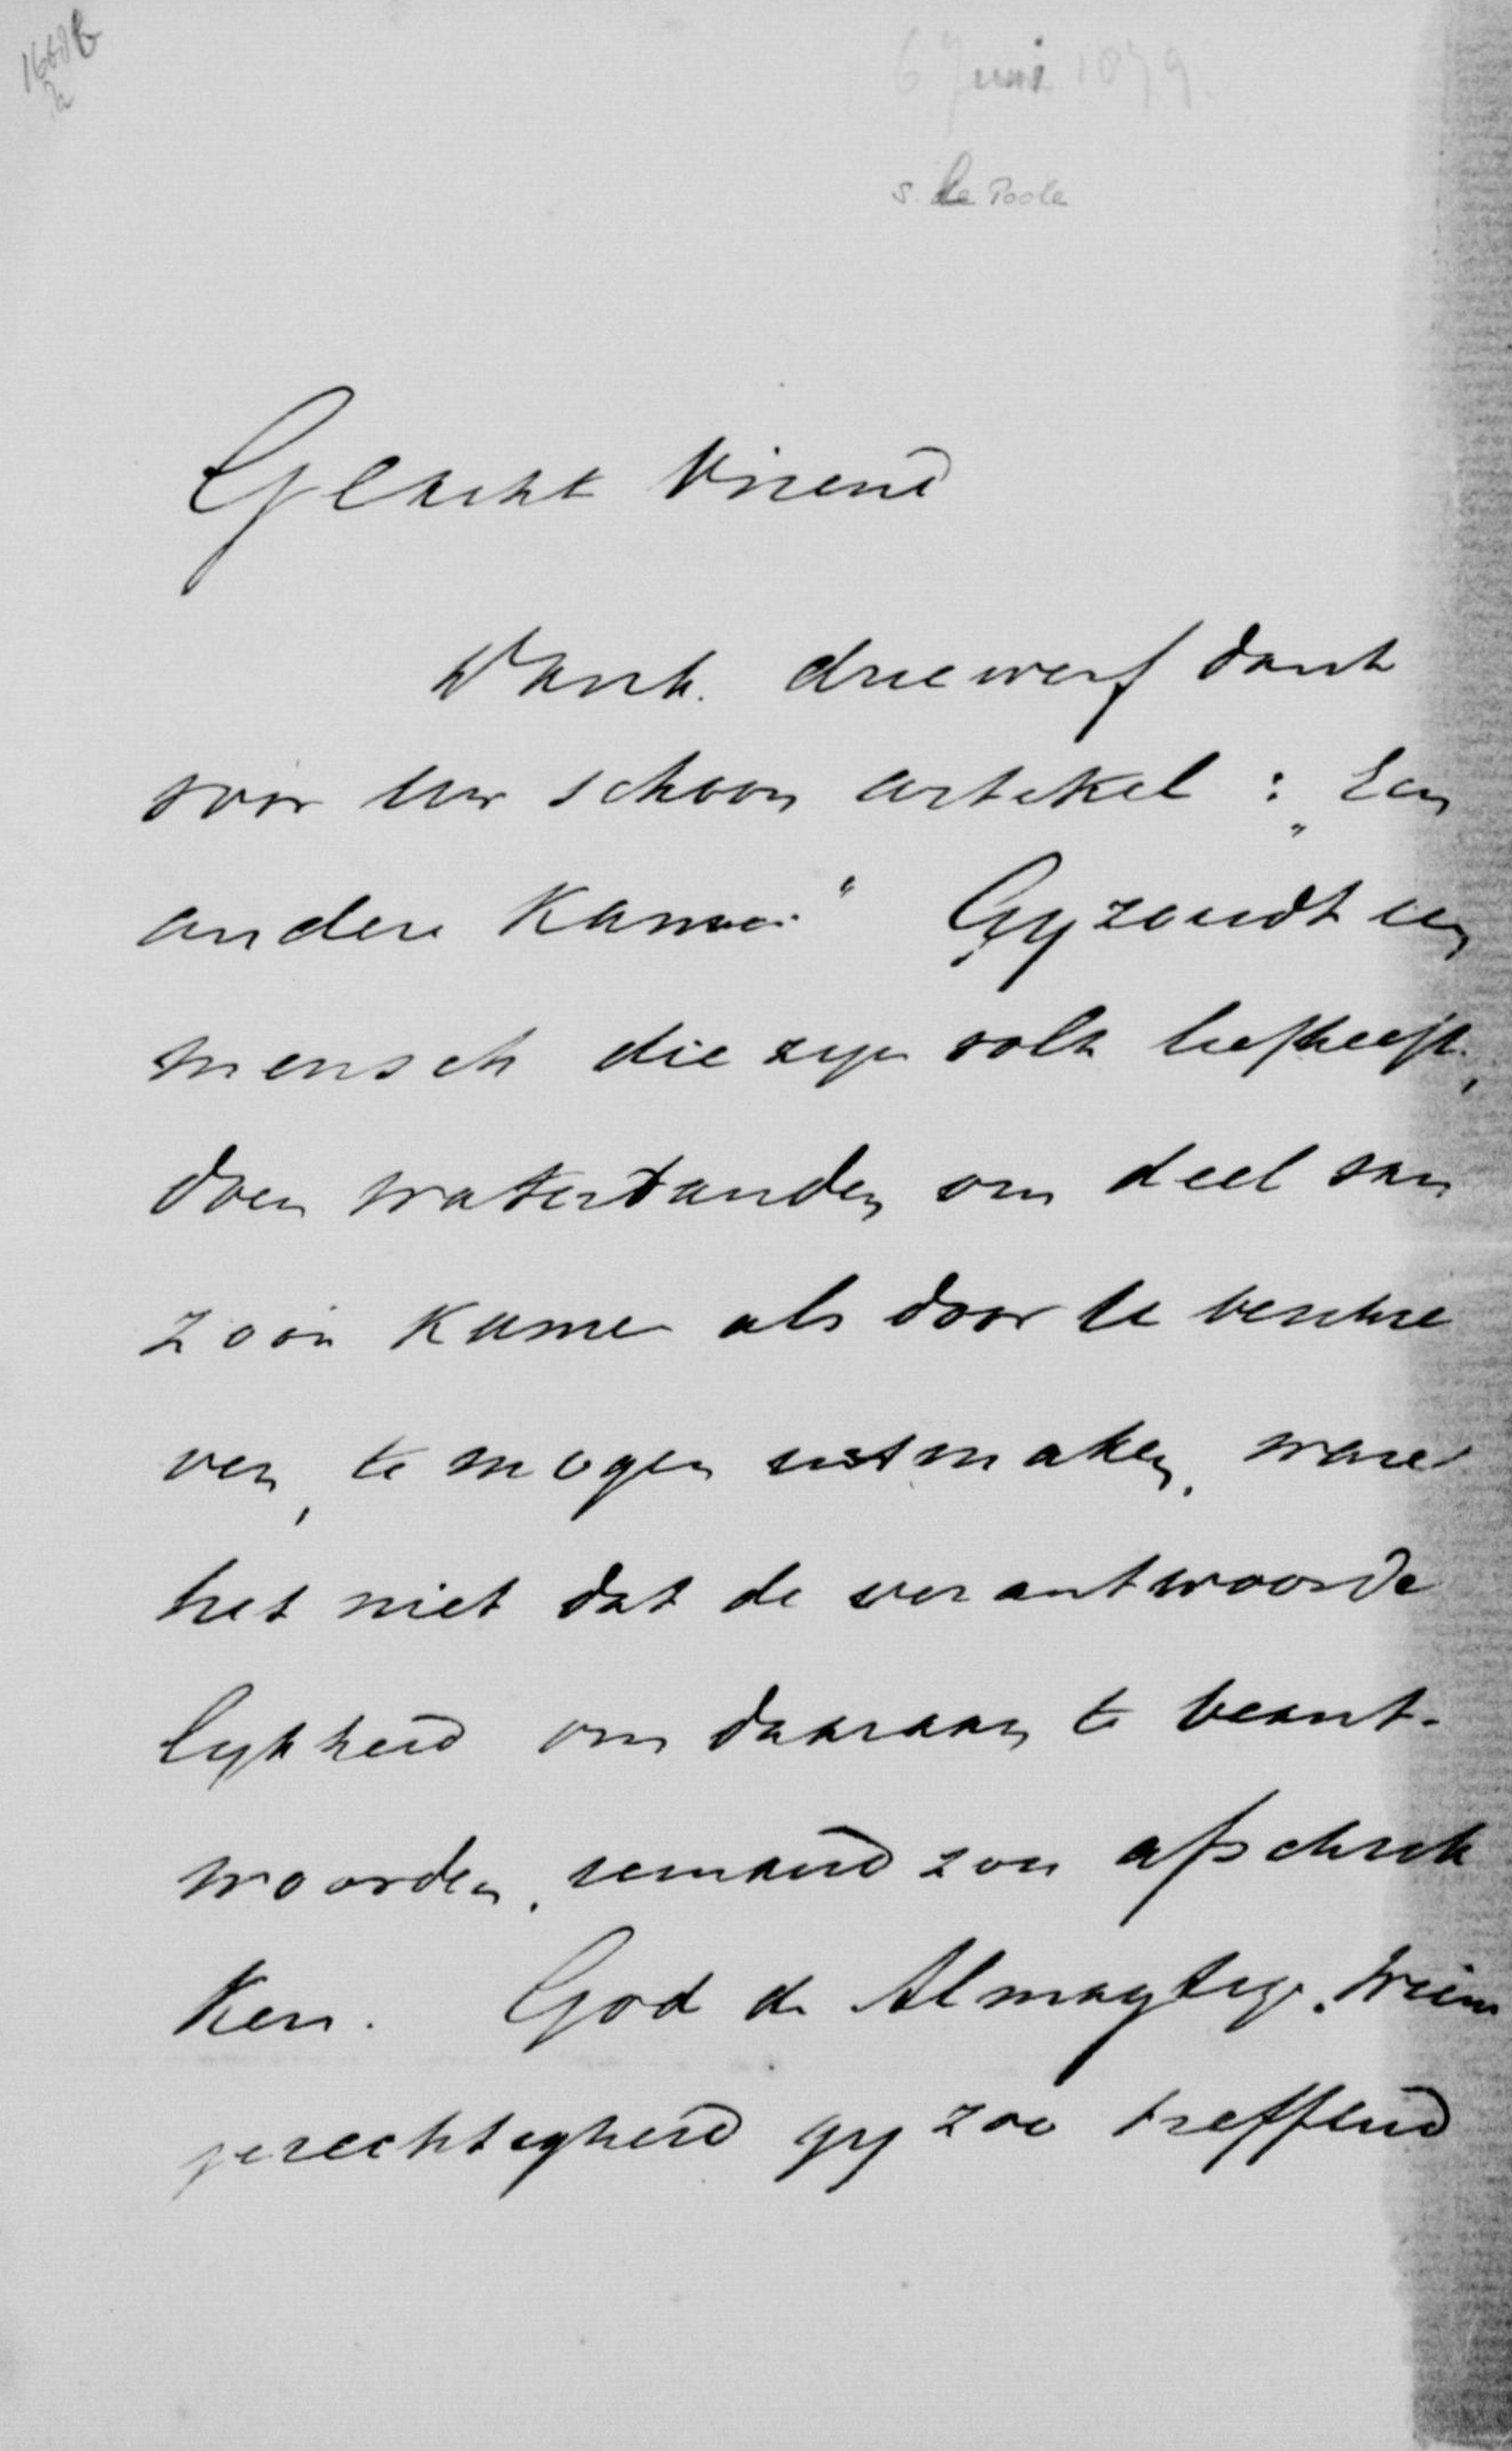 1668b
2a
6 Juni 1879.
s. de Poole
Geacht Vriend
Dank. driewerf dank
voor Uw schoon artikel : „Een
andere Kamer" Gy zoudt een
mensch die zyn volk liefheeft,
doen watertanden om deel van
zoo'n Kamer als door U beschre
ven, te mogen uitmaken, ware
het niet dat de verantwoorde
lykheid om daaraan te beant-
woorden, iemand zou afschrik
ken. God de Almagtige, Wiens
gerechtigheid gy zoo treffend